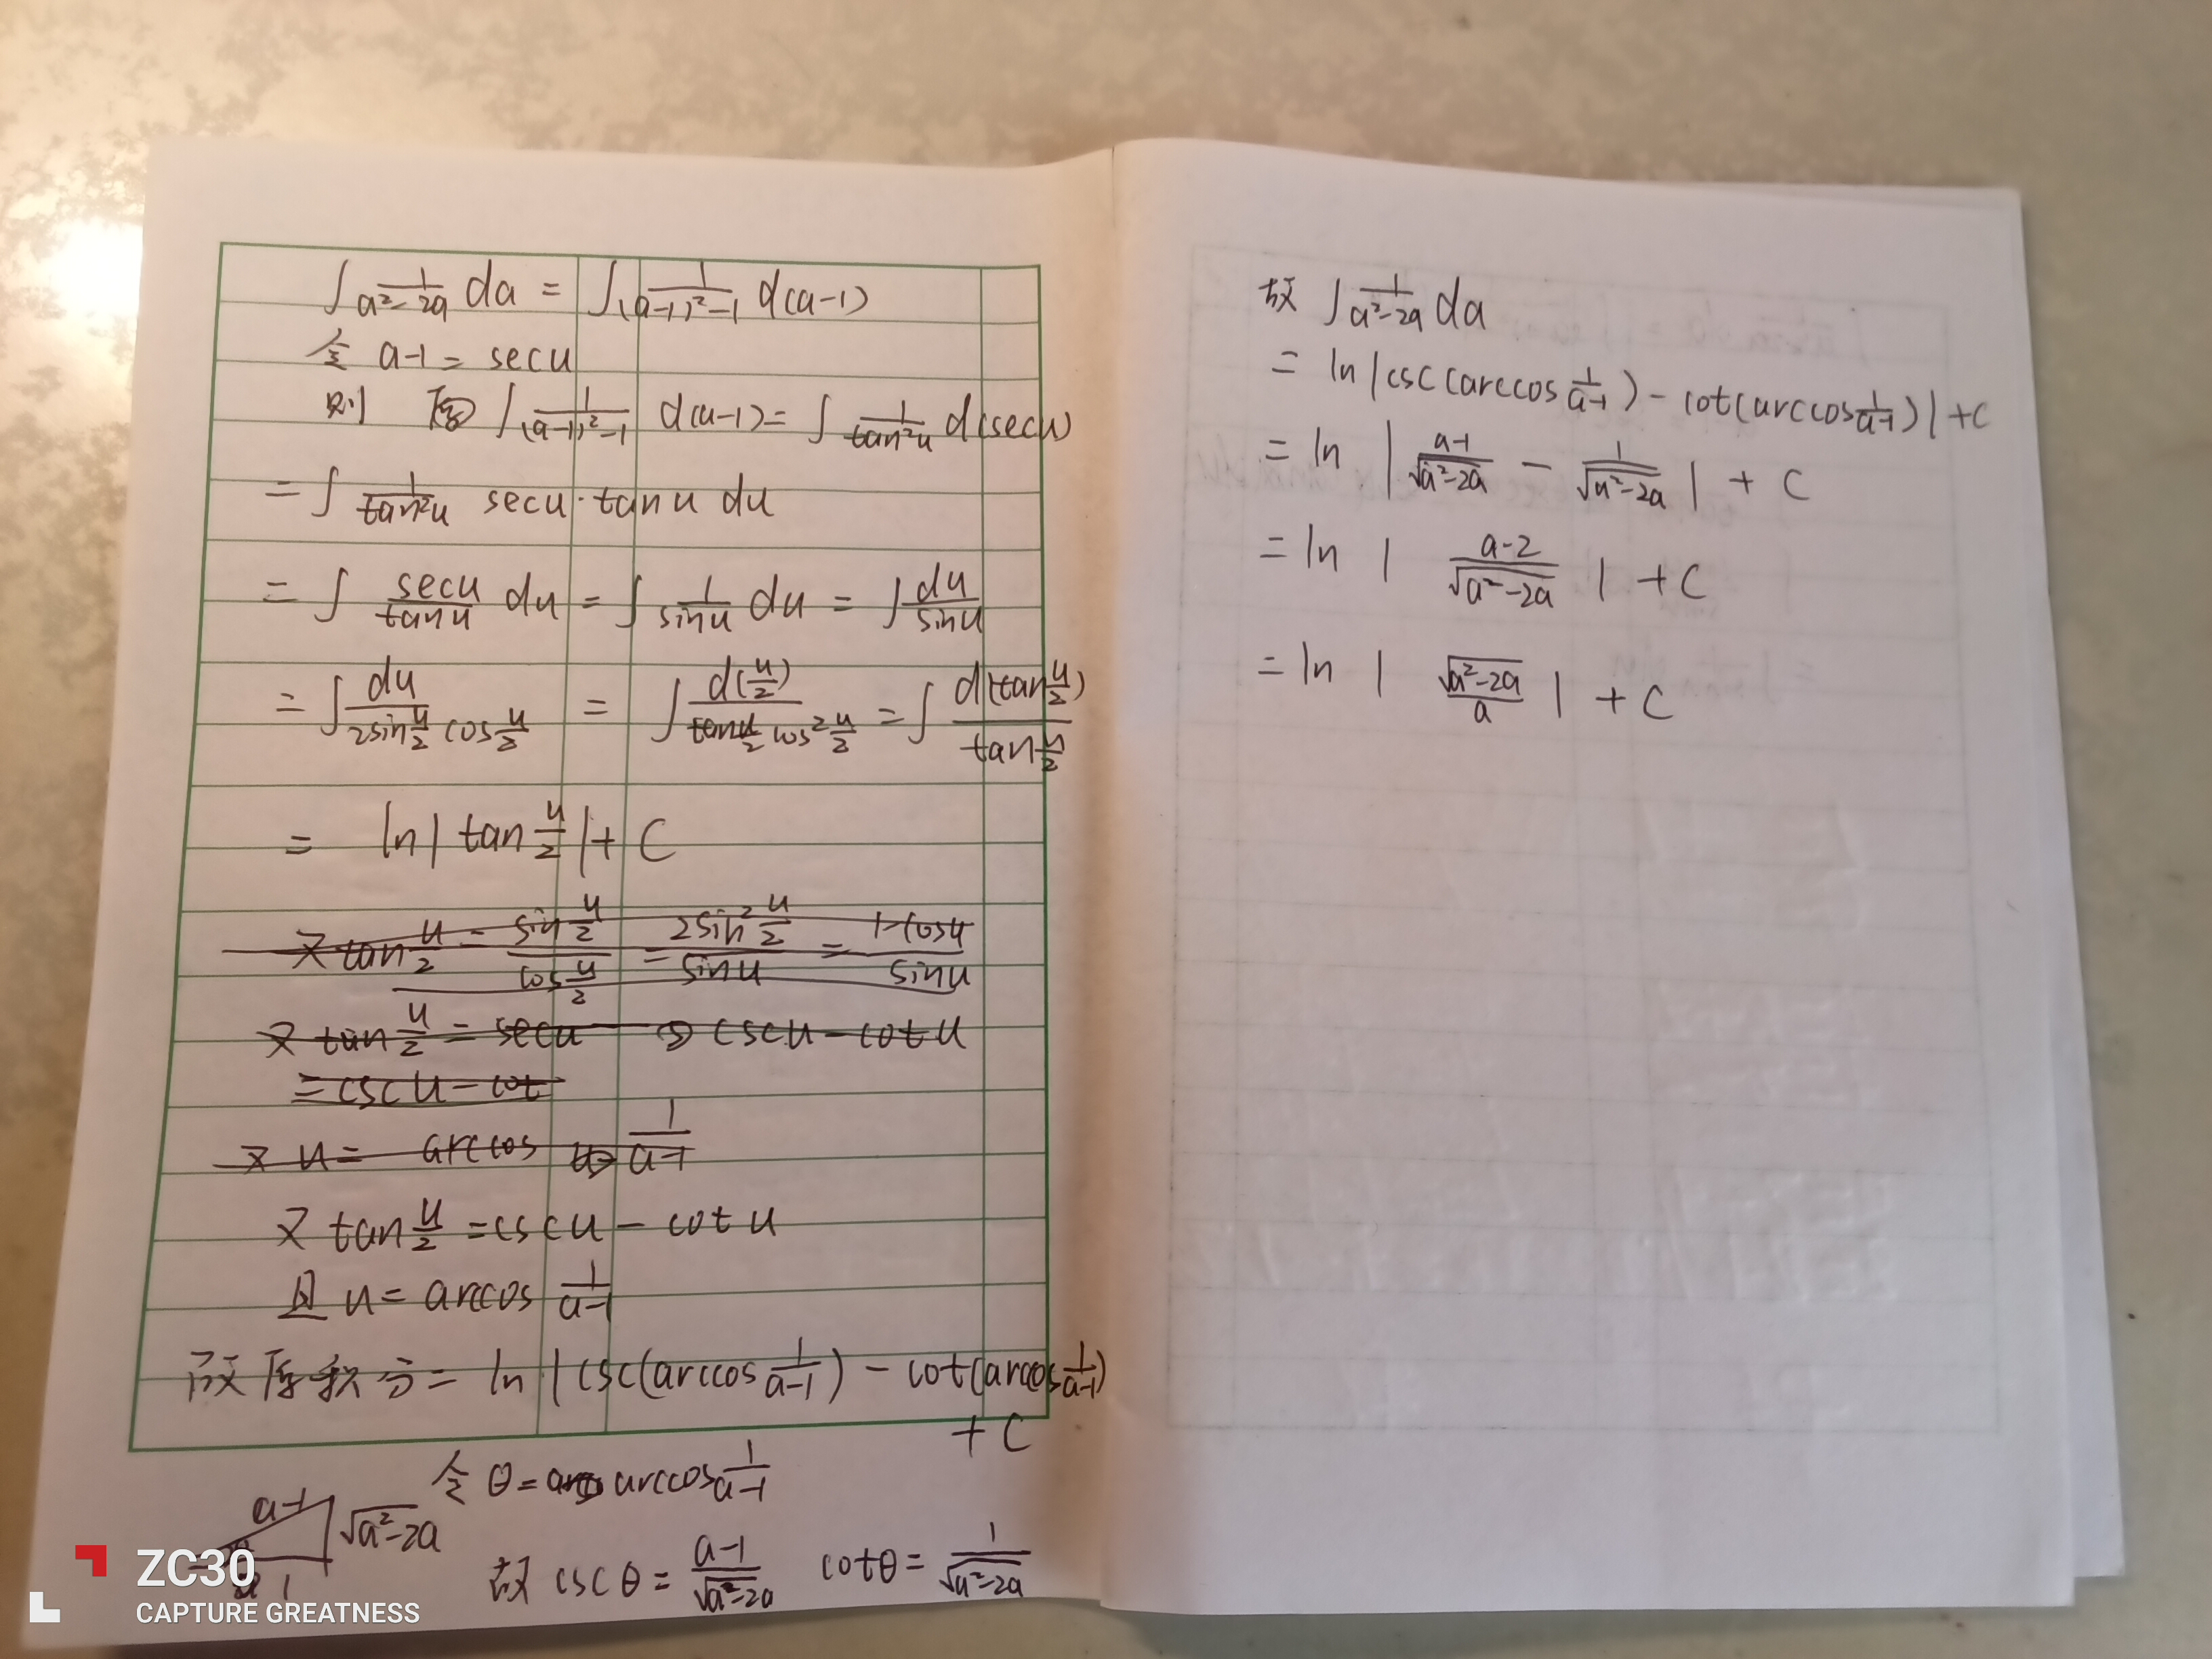 ∫ 1/(a²-2a) da = ∫ 1/((a-1)²-1) d(a-1)
令 a-1 = secu
则 ∫ 1/((a-1)²-1) d(a-1) = ∫ 1/tan²u d(secu)
= ∫ 1/tan²u secu·tanu du
= ∫ secu/tanu du = ∫ 1/sinu du = ∫ du/sinu
= ∫ du/(2sin u/2 cos u/2) = ∫ d(u/2)/(tan u/2 cos² u/2) = ∫ d(tan u/2)/(tan u/2)
= ln|tan u/2| + C
又 tan u/2 = (sin u/2)/(cos u/2) = (2sin² u/2)/sinu = (1-cosu)/sinu
又 tan u/2 = secu cscu - cotu
= cscu - cot
又 u = arccos 1/(a-1)
又 tan u/2 = cscu - cotu
且 u = arccos 1/(a-1)
故原积分 = ln|csc(arccos 1/(a-1)) - cot(arccos 1/(a-1))
+ C
令 θ = arccos 1/(a-1)
a-1 √(a²-2a)
1
故 cscθ = (a-1)/√(a²-2a) cotθ = 1/√(a²-2a)
ZC30
CAPTURE GREATNESS
故 ∫ 1/(a²-2a) da
= ln|csc(arccos 1/(a-1)) - cot(arccos 1/(a-1))| + C
= ln |(a-1)/√(a²-2a) - 1/√(a²-2a)| + C
= ln |(a-2)/√(a²-2a)| + C
= ln |√(a²-2a)/a| + C